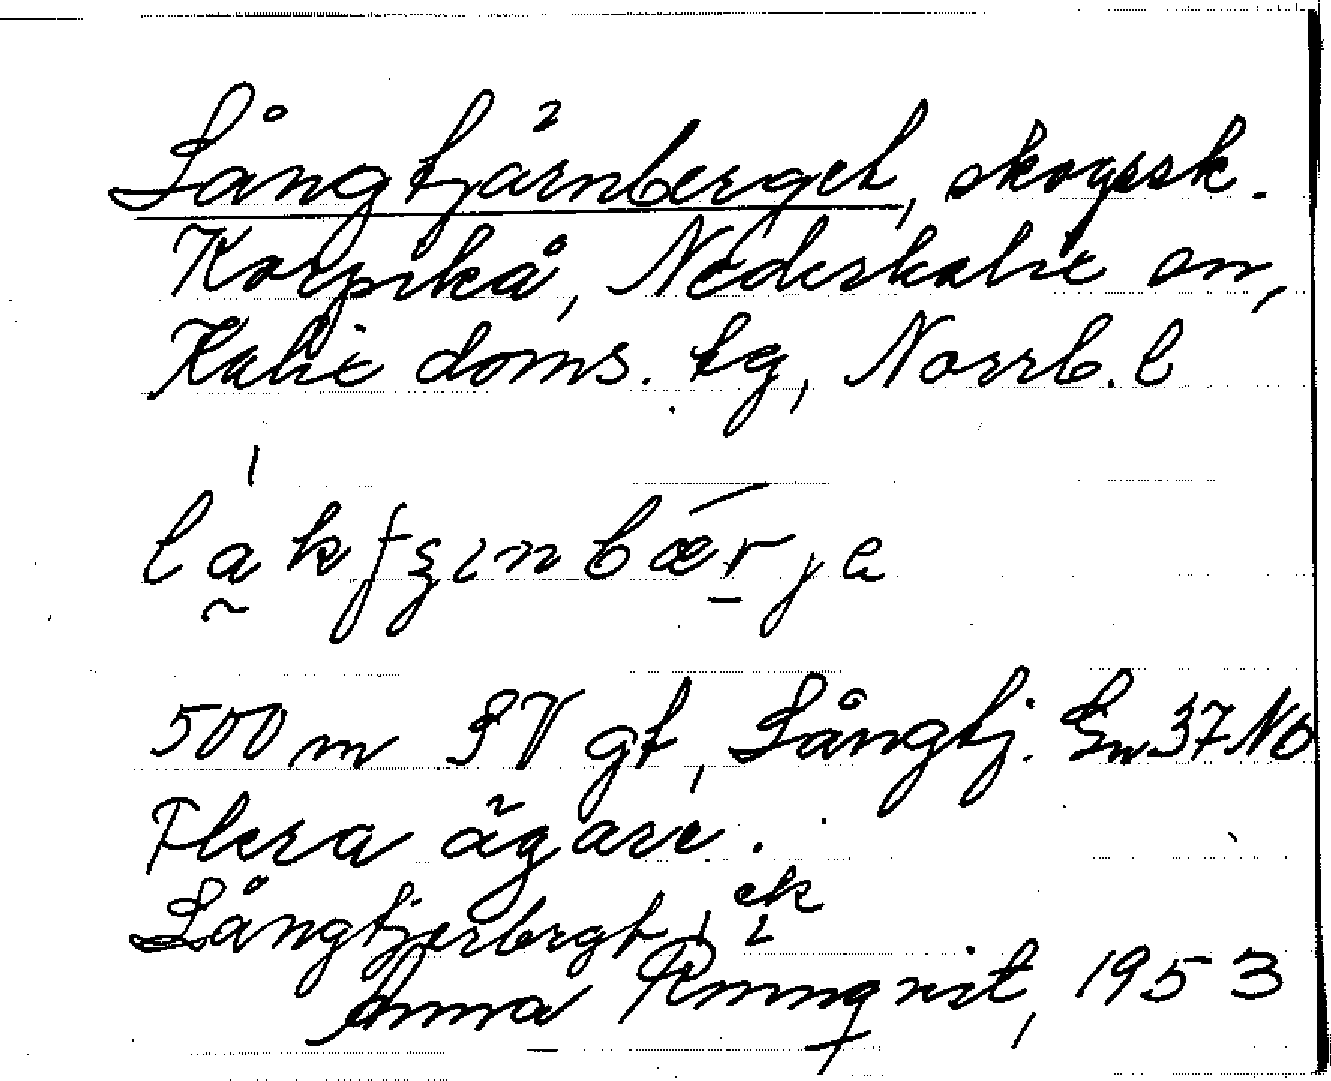 Långtjärnberget, skogssk.
Korpikå, Nederkalix sn,
Kalix doms. tg, Norrb. l
500 m SV gt, Långtj. Ln 37 No
Flera ägare.
Långtjerbergt, ek
Anna Rönnqvist, 1953